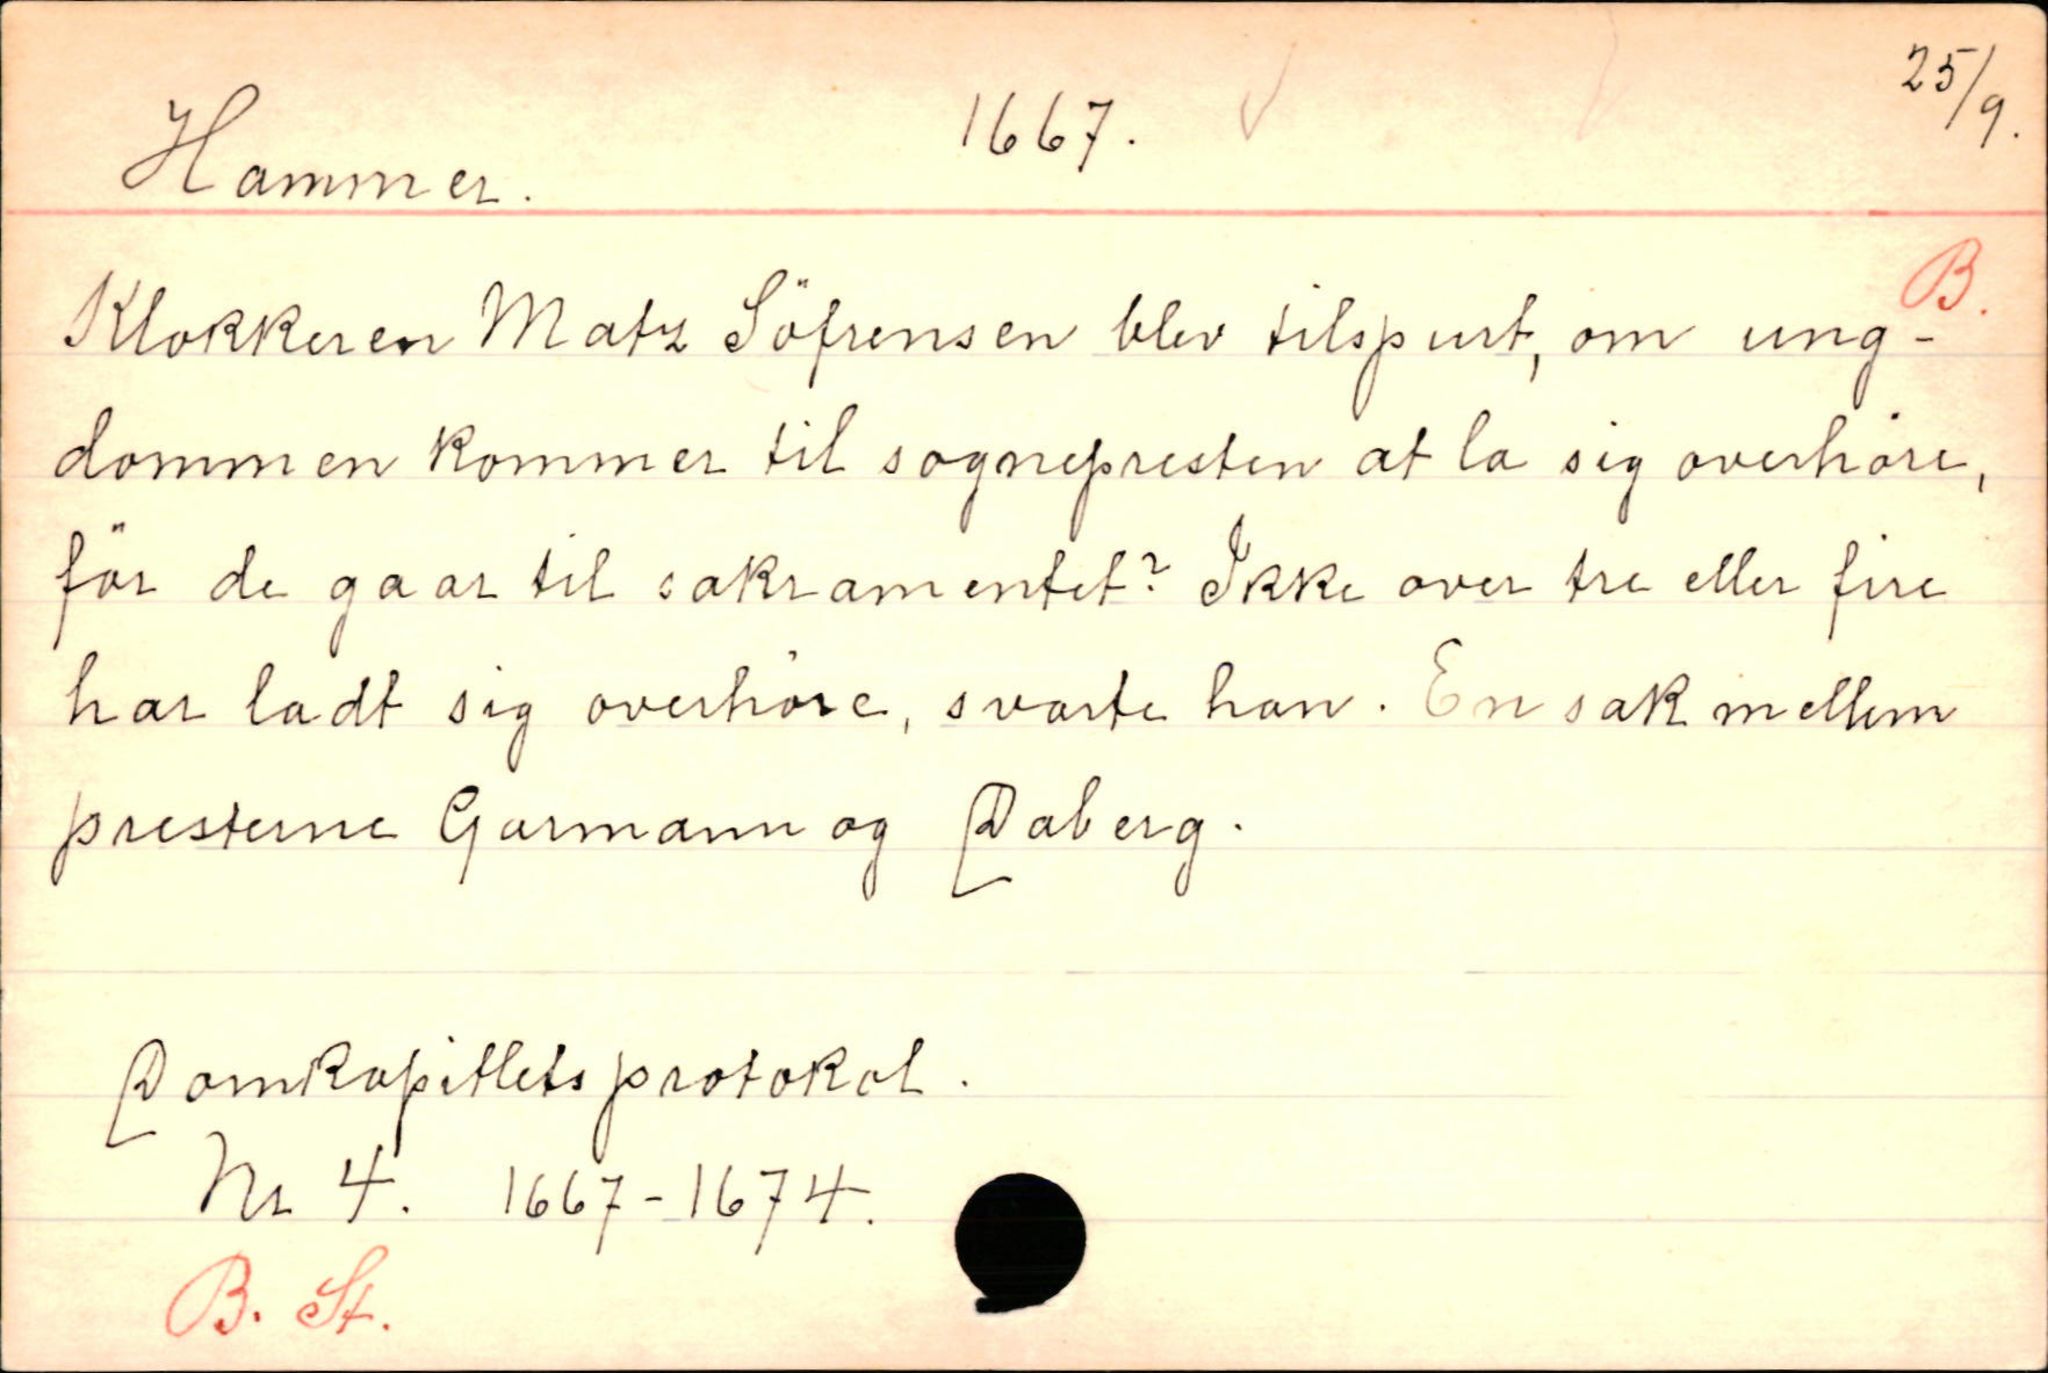 25/9.
Hammer. 1667.
B.
Klokkeren Matz Söfrensen blev tilspurt, om ung-
dommen kommer til sognepresten at la sig overhöre,
för de gaar til sakramentet? Ikke over tre eller fire
har ladt sig overhöre, svarte han. En sak mellem
presterne Garmann og Daberg.
Domkapitlets protokol.
Nr 4. 1667-1674.
B. St.